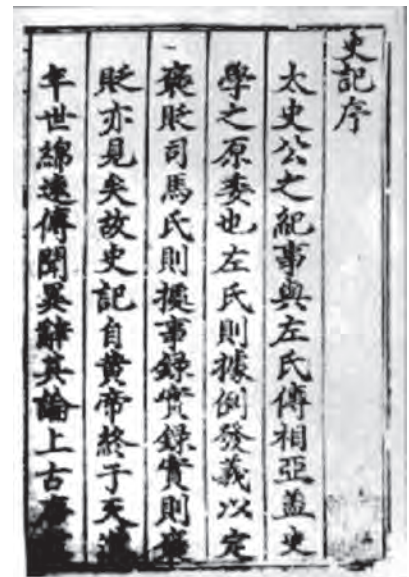 史記序
太史公之紀事與左氏傳相亞盖史
學之原委也左氏則據例發義以定
褒貶司馬氏則摭事錄實錄實則褒
貶亦見矣故史記自黃帝終于天漢
年世綿遠傳聞異辭其論上古